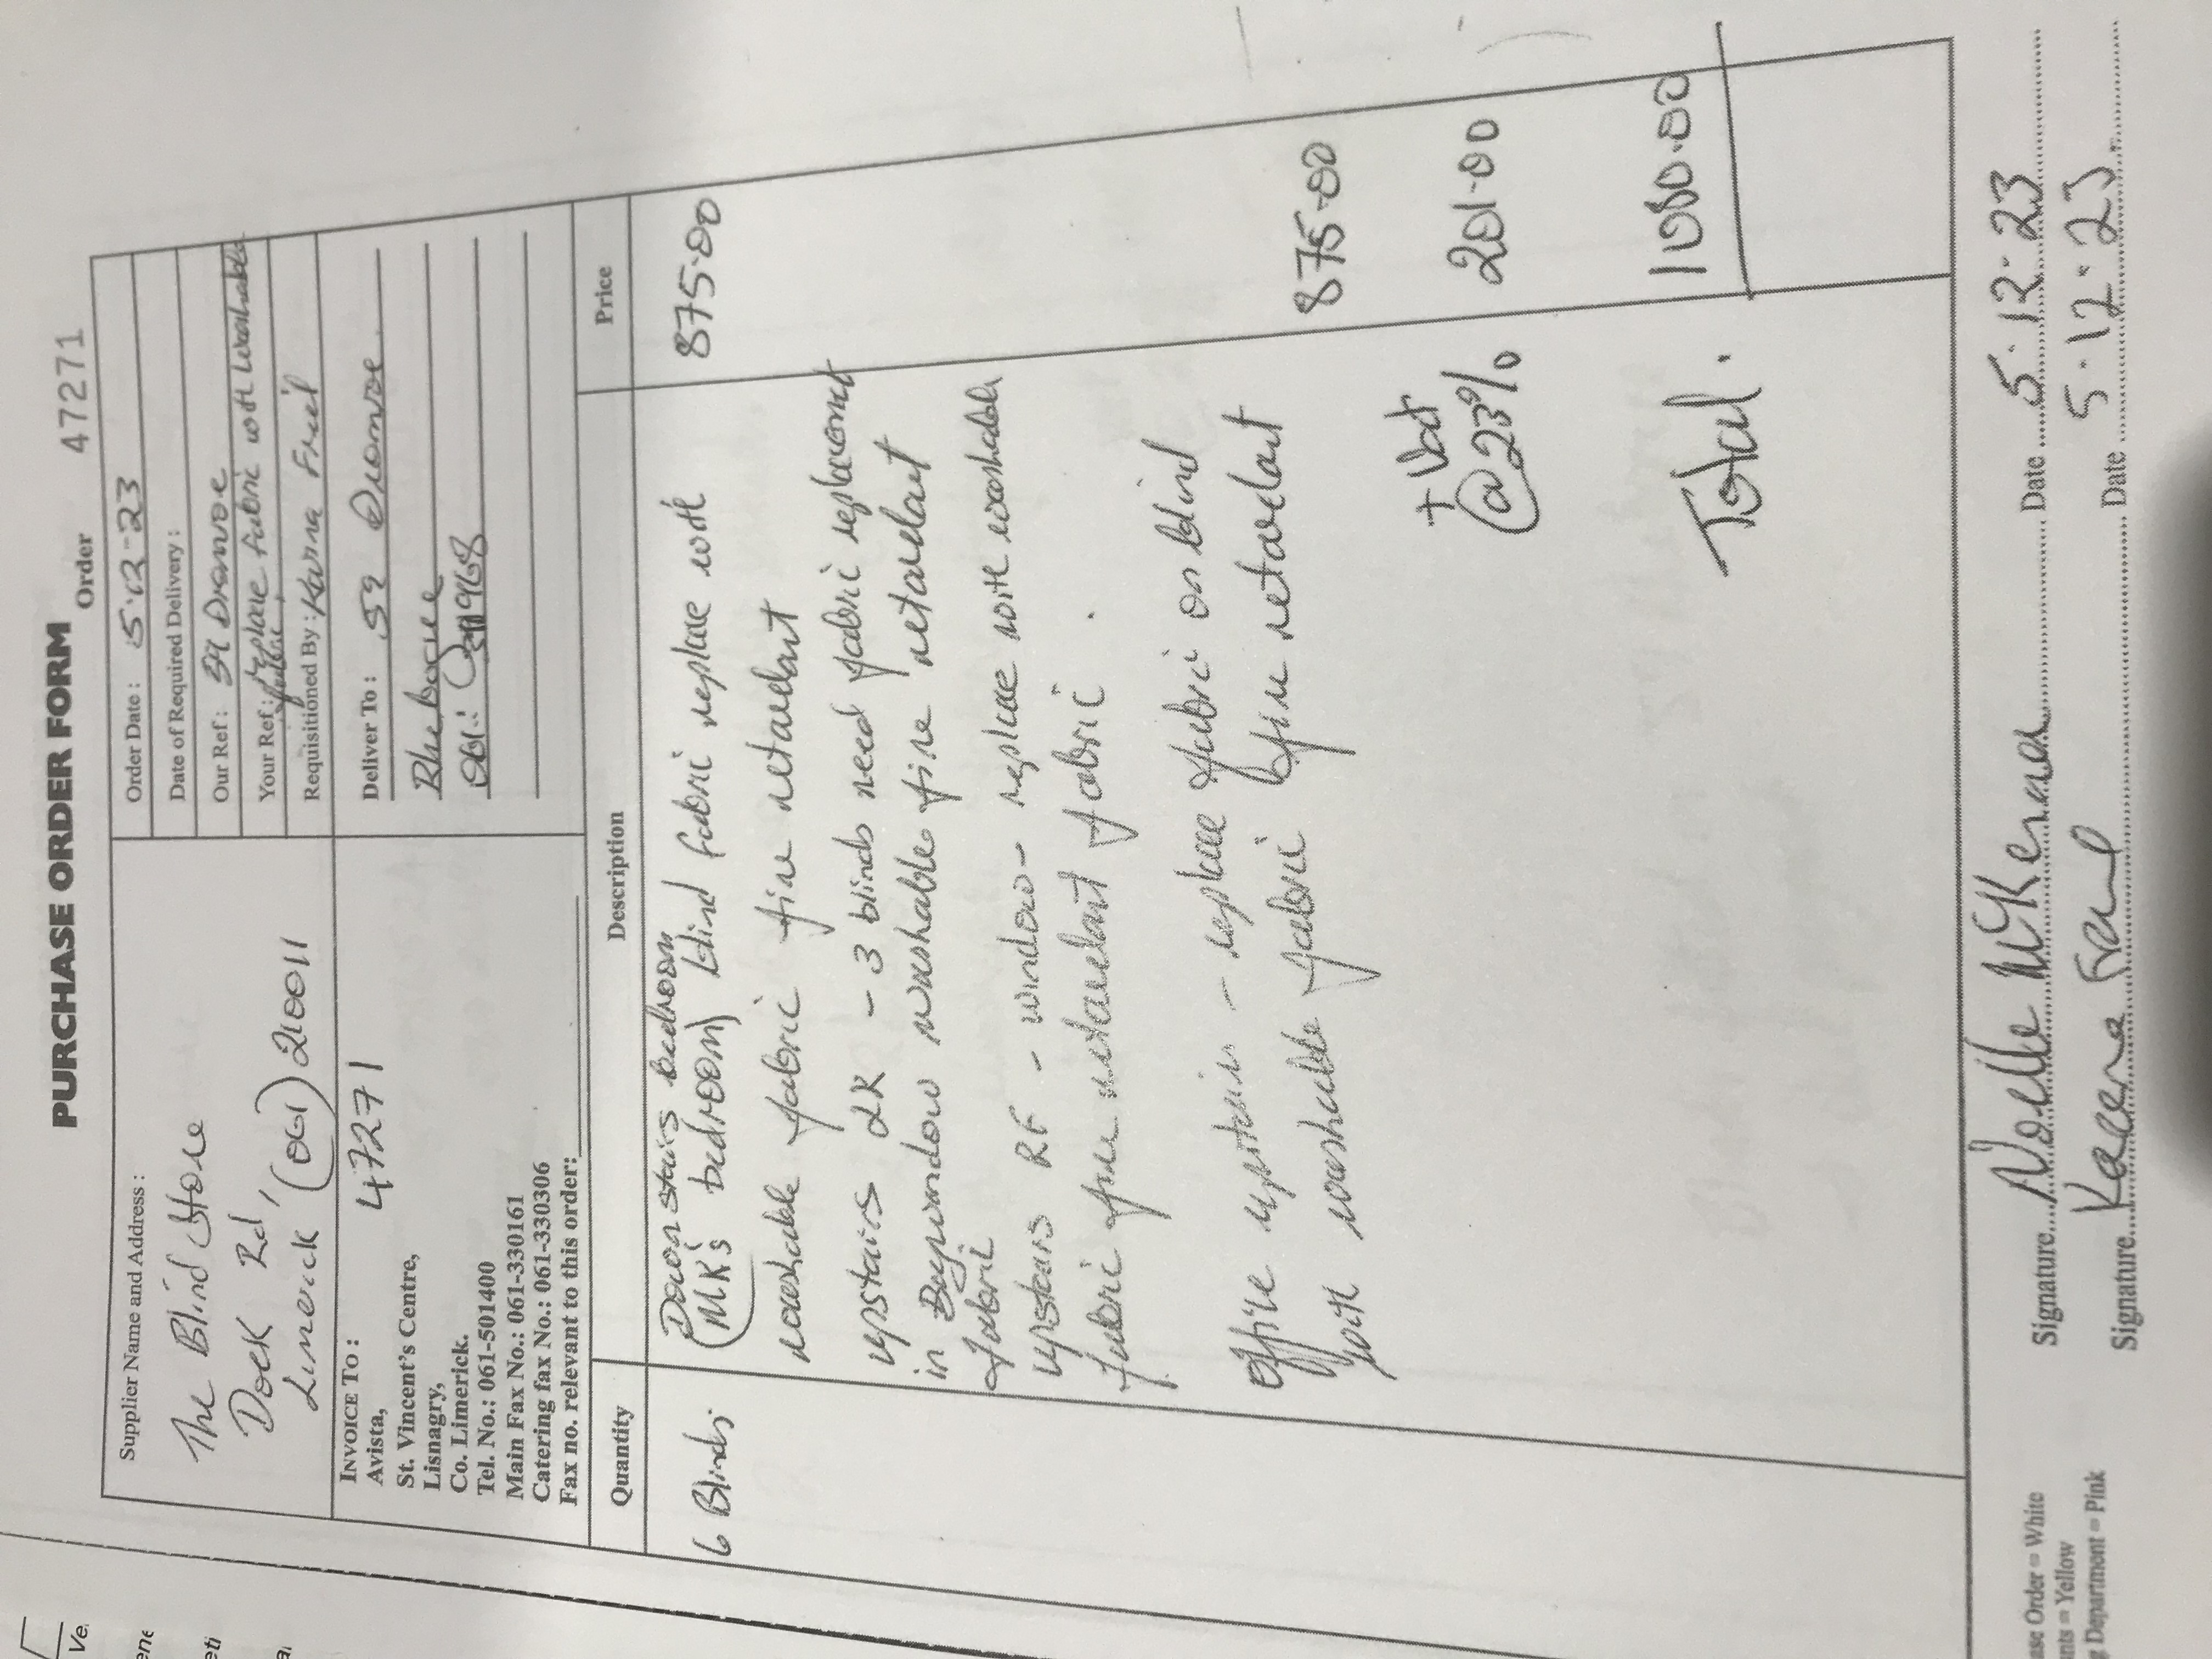 PURCHASE ORDER FORM
Order 47271
Supplier Name and Address :
The Blind Store
Dock Rd,
Limerick (061) 210011
Order Date : 5-12-23
Date of Required Delivery :
Our Ref : 59 Dromroe
Your Ref : replace fabric with washable
fabric
Requisitioned By : Karena Friel
INVOICE TO : 47271
Avista,
St. Vincent's Centre,
Lisnagry,
Co. Limerick.
Tel. No.: 061-501400
Main Fax No.: 061-330161
Catering fax No.: 061-330306
Fax no. relevant to this order:
Deliver To : 59 Dromroe
Rhebogue
061:
Quantity Description Price
6 Blinds. Down stairs bedroom
(MK's bedroom) blind fabric replace with 875.00
washable fabric fire retardant
upstairs LR - 3 blinds need fabric replacement
in Baywindow washable fire retardant
fabric
upstairs RF - window - replace with washable
fabric fire retardant fabric.
Office upstairs - replace fabric on blind
with washable fabric fire retardant 875.00
+ Vat
@ 23% 201.00
Total. 1080.00
Signature Noelle McKenna Date 5.12.23
Signature Karena Friel Date 5.12.23
ase Order = White
nts = Yellow
g Department = Pink
Ve
ene
eti
a